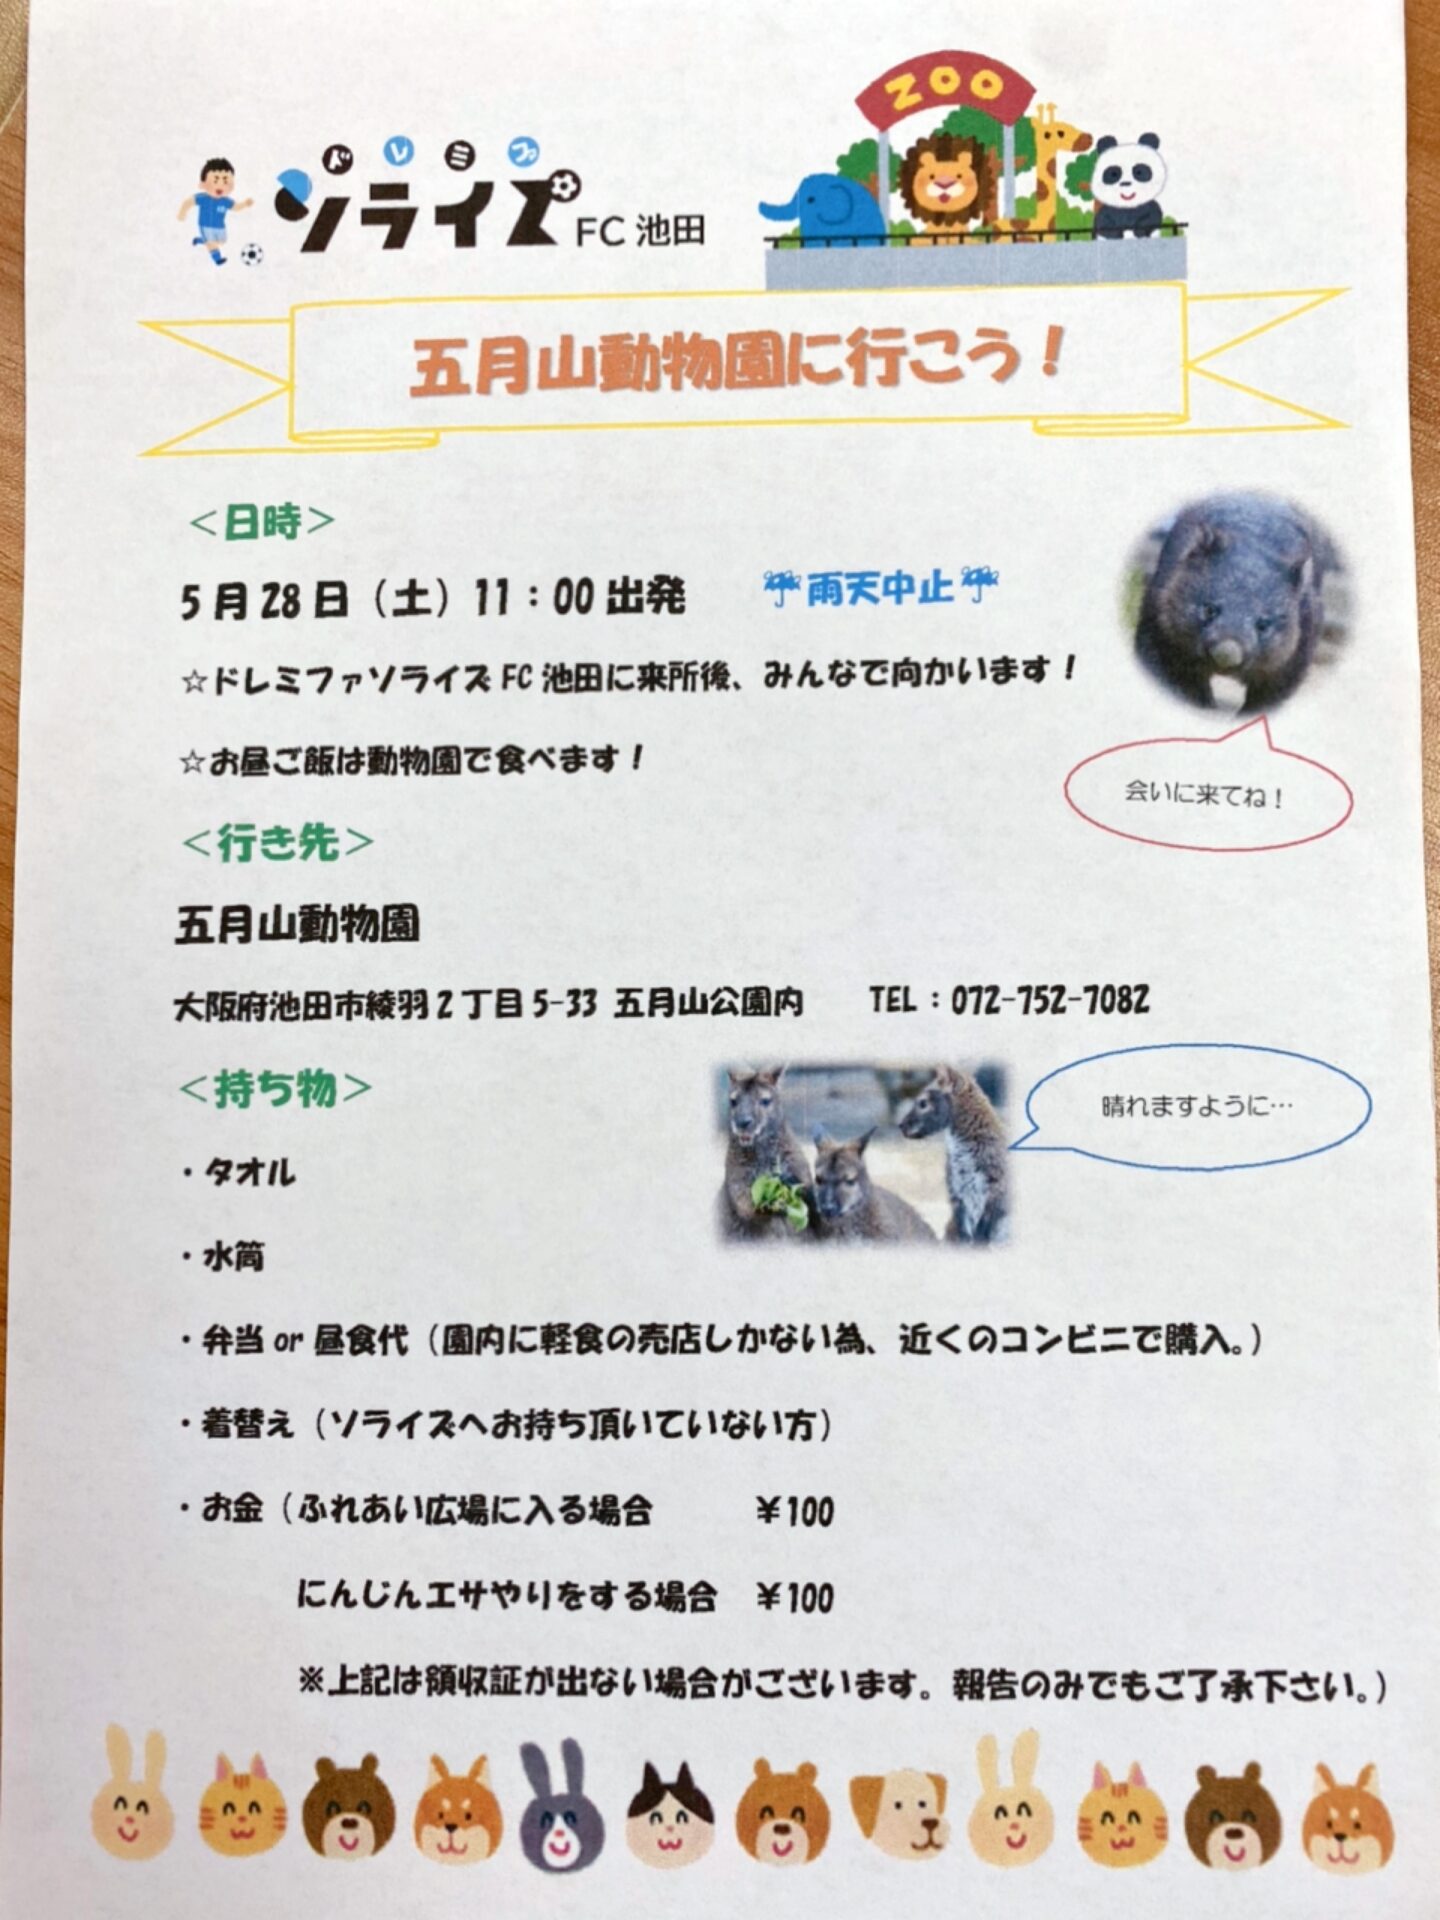 ZOO
ドレミファ
ソライズ FC 池田
五月山動物園に行こう！
＜日時＞
5月28日（土）11：00出発　☂雨天中止☂
☆ドレミファソライズFC池田に来所後、みんなで向かいます！
☆お昼ご飯は動物園で食べます！
会いに来てね！
＜行き先＞
五月山動物園
大阪府池田市綾羽2丁目5-33 五月山公園内　TEL：072-752-7082
＜持ち物＞
晴れますように…
・タオル
・水筒
・弁当or昼食代（園内に軽食の売店しかない為、近くのコンビニで購入。）
・着替え（ソライズへお持ち頂いていない方）
・お金（ふれあい広場に入る場合　￥100
にんじんエサやりをする場合　￥100
※上記は領収証が出ない場合がございます。報告のみでもご了承下さい。）